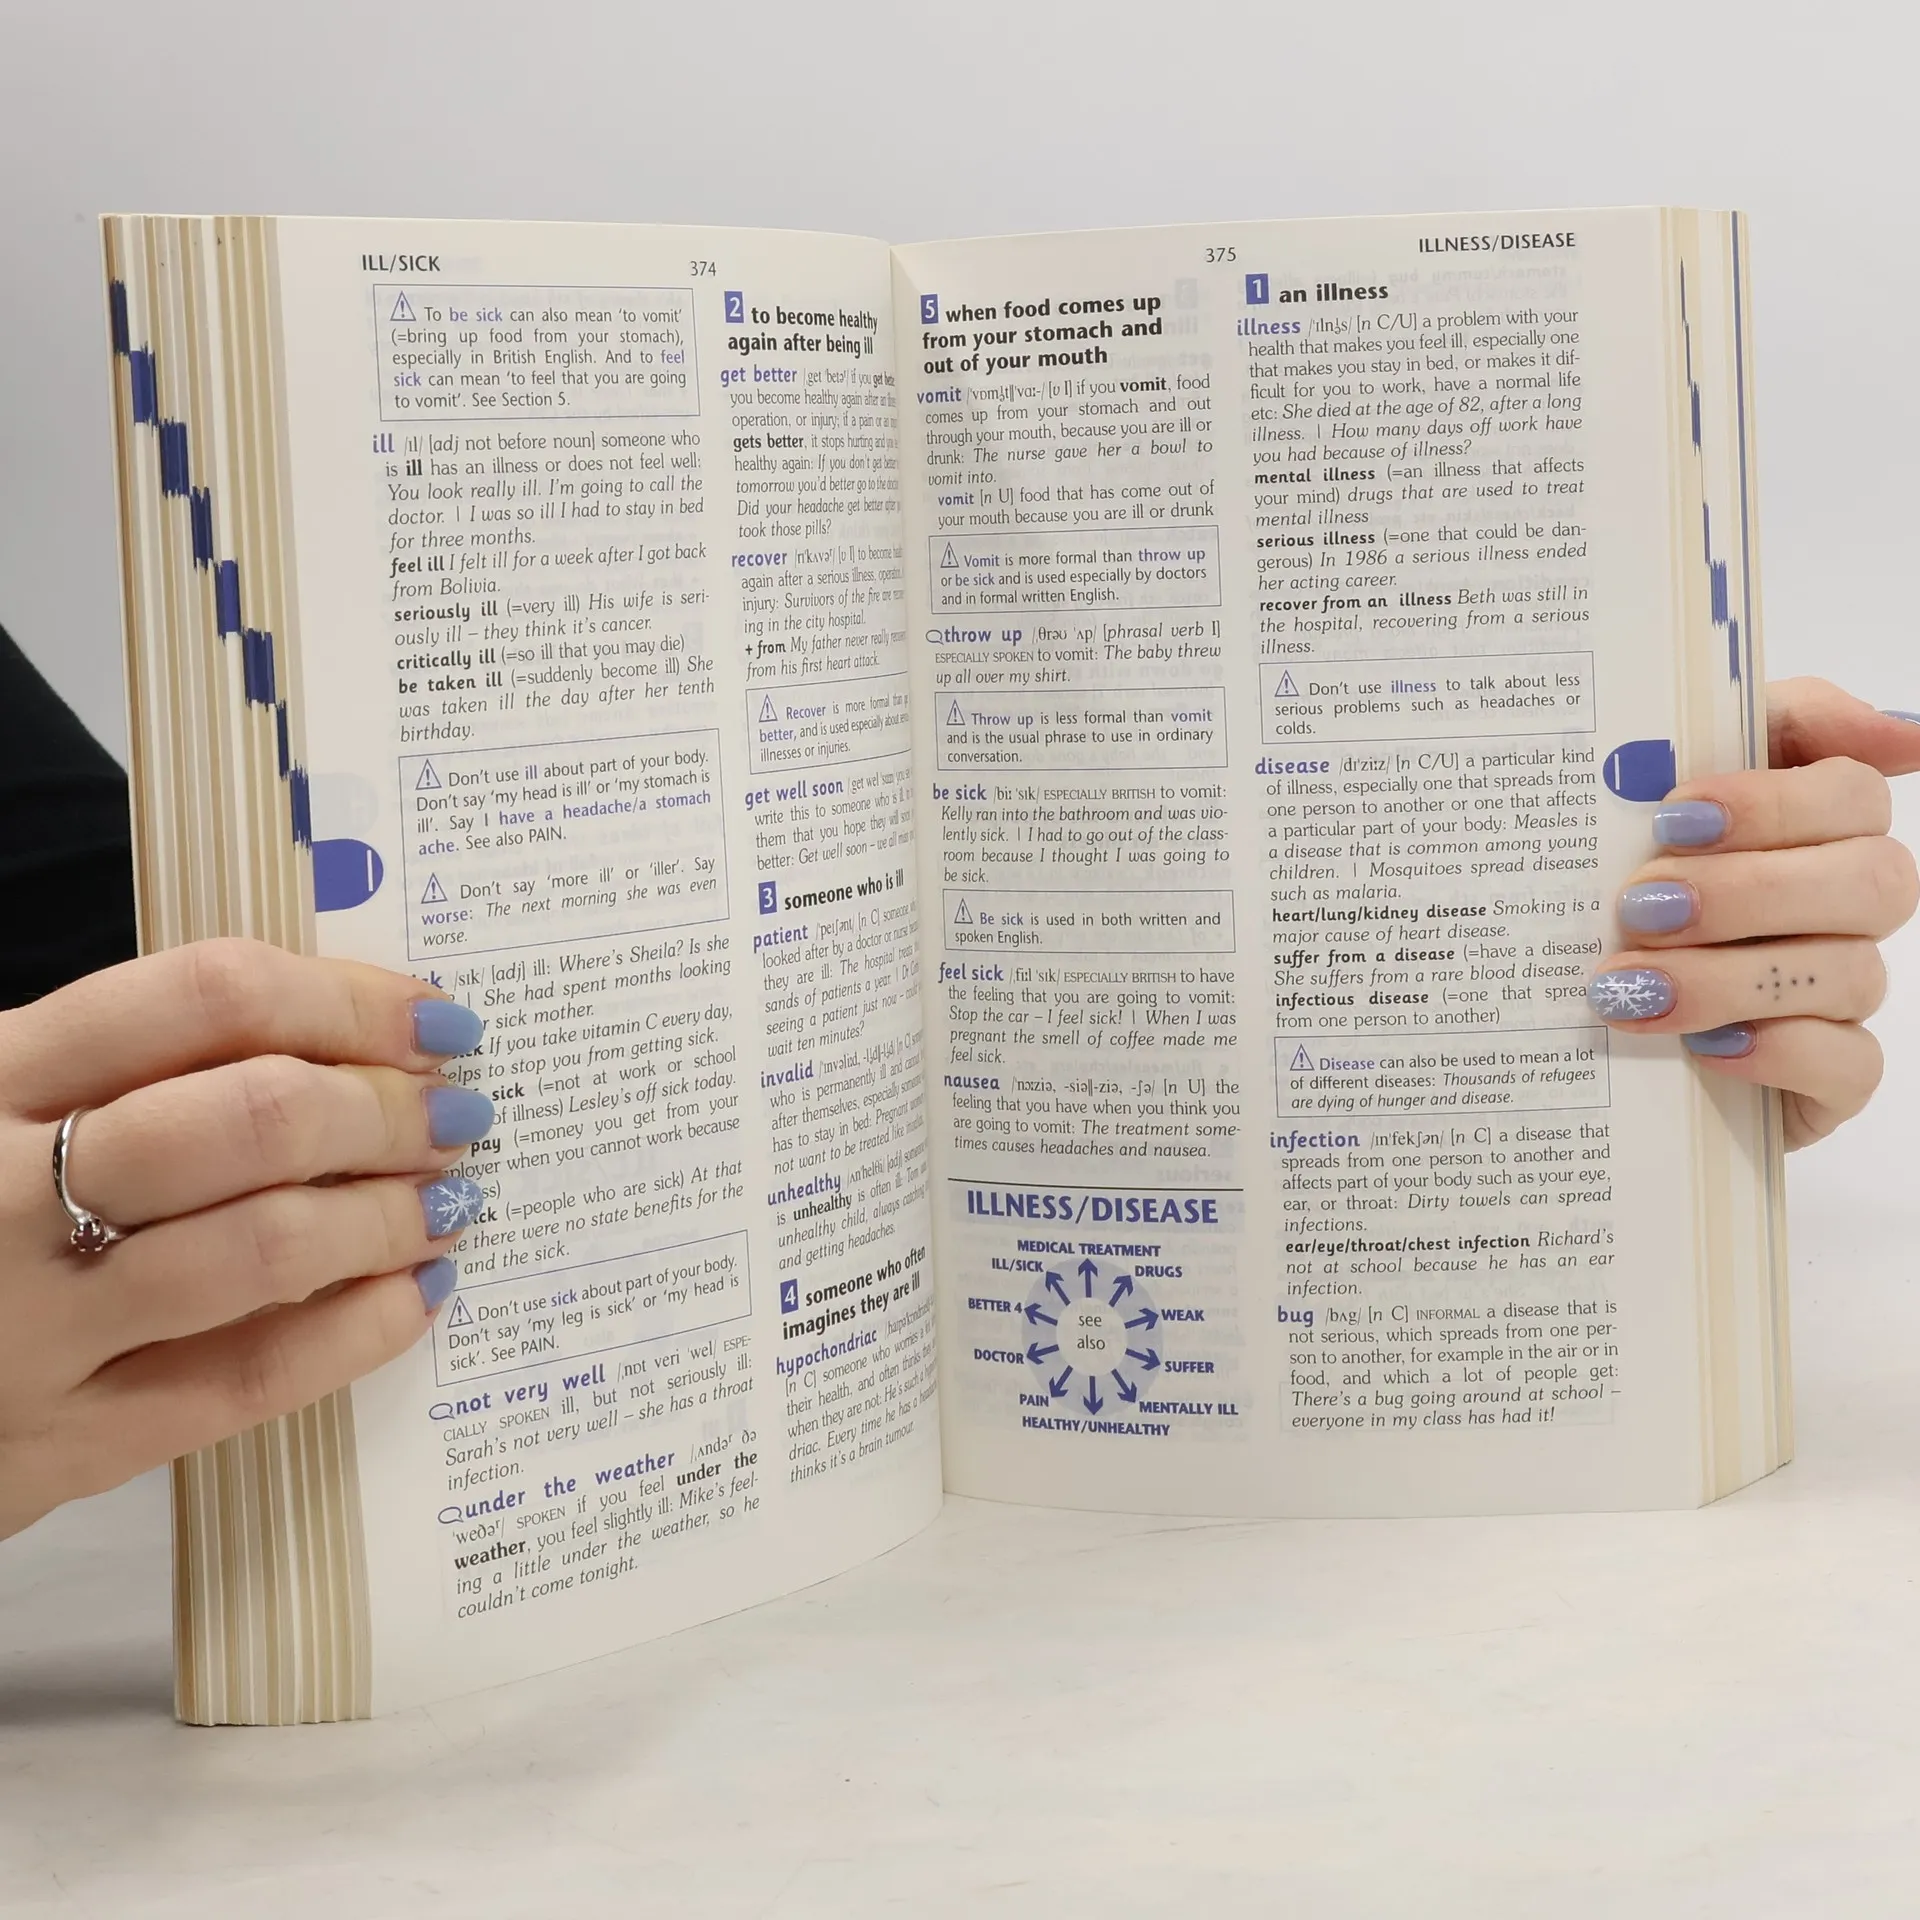 ILL/SICK
374
⚠ To be sick can also mean 'to vomit'
(=bring up food from your stomach),
especially in British English. And to feel
sick can mean 'to feel that you are going
to vomit'. See Section 5.
ill /ɪl/ [adj not before noun] someone who
is ill has an illness or does not feel well:
You look really ill. I'm going to call the
doctor. | I was so ill I had to stay in bed
for three months.
feel ill I felt ill for a week after I got back
from Bolivia.
seriously ill (=very ill) His wife is seri-
ously ill – they think it's cancer.
critically ill (=so ill that you may die)
be taken ill (=suddenly become ill) She
was taken ill the day after her tenth
birthday.
⚠ Don't use ill about part of your body.
Don't say 'my head is ill' or 'my stomach is
ill'. Say I have a headache/a stomach
ache. See also PAIN.
⚠ Don't say 'more ill' or 'iller'. Say
worse: The next morning she was even
worse.
/sɪk/ [adj] ill: Where's Sheila? Is she
| She had spent months looking
sick mother.
If you take vitamin C every day,
to stop you from getting sick.
sick (=not at work or school
of illness) Lesley's off sick today.
pay (=money you get from your
when you cannot work because
(=people who are sick) At that
there were no state benefits for the
and the sick.
⚠ Don't use sick about part of your body.
Don't say 'my leg is sick' or 'my head is
sick'. See PAIN.
not very well /ˌnɒt veri ˈwel/ ESPE-
CIALLY SPOKEN ill, but not seriously ill:
Sarah's not very well – she has a throat
infection.
under the weather /ˌʌndəʳ ðə
ˈweðəʳ/ SPOKEN if you feel under the
weather, you feel slightly ill: Mike's feel-
ing a little under the weather, so he
couldn't come tonight.
2 to become healthy
again after being ill
get better /get ˈbetəʳ/ if you get better
you become healthy again after an
operation, or injury; if a pain or an
gets better, it stops hurting and
healthy again: If you don't get better
tomorrow you'd better go to the
Did your headache get better after
took those pills?
recover /rɪˈkʌvəʳ/ [v I] to become
again after a serious illness,
injury: Survivors of the fire are
ing in the city hospital.
+ from My father never really
from his first heart attack.
⚠ Recover is more formal than
better, and is used especially about
illnesses or injuries.
get well soon /get wel ˈsuːn/
write this to someone who is ill
them that you hope they will
better: Get well soon – we all
3 someone who is ill
patient /ˈpeɪʃənt/ [n C] someone
looked after by a doctor or nurse
they are ill: The hospital treats
sands of patients a year. |
seeing a patient just now –
wait ten minutes?
invalid [n C]
who is permanently ill and
after themselves, especially someone
has to stay in bed: Pregnant
not want to be treated like
unhealthy /ʌnˈhelθi/ [adj]
is unhealthy is often ill: Tom
unhealthy child, always catching
and getting headaches.
4 someone who often
imagines they are ill
hypochondriac
[n C] someone who worries
their health, and often thinks
when they are not: He's such a
driac. Every time he has a
thinks it's a brain tumour.
375
ILLNESS/DISEASE
5 when food comes up
from your stomach and
out of your mouth
vomit /ˈvɒmɪ̇t‖ˈvɑː-/ [v I] if you vomit, food
comes up from your stomach and out
through your mouth, because you are ill or
drunk: The nurse gave her a bowl to
vomit into.
vomit [n U] food that has come out of
your mouth because you are ill or drunk
⚠ Vomit is more formal than throw up
or be sick and is used especially by doctors
and in formal written English.
throw up /ˌθrəʊ ˈʌp/ [phrasal verb I]
ESPECIALLY SPOKEN to vomit: The baby threw
up all over my shirt.
⚠ Throw up is less formal than vomit
and is the usual phrase to use in ordinary
conversation.
be sick /biː ˈsɪk/ ESPECIALLY BRITISH to vomit:
Kelly ran into the bathroom and was vio-
lently sick. | I had to go out of the class-
room because I thought I was going to
be sick.
⚠ Be sick is used in both written and
spoken English.
feel sick /ˌfiːl ˈsɪk/ ESPECIALLY BRITISH to have
the feeling that you are going to vomit:
Stop the car – I feel sick! | When I was
pregnant the smell of coffee made me
feel sick.
nausea /ˈnɔːziə, -siə‖-ziə, -ʃə/ [n U] the
feeling that you have when you think you
are going to vomit: The treatment some-
times causes headaches and nausea.
ILLNESS/DISEASE
MEDICAL TREATMENT
ILL/SICK
DRUGS
BETTER 4
WEAK
see
also
DOCTOR
SUFFER
PAIN
MENTALLY ILL
HEALTHY/UNHEALTHY
1 an illness
illness /ˈɪlnɪ̇s/ [n C/U] a problem with your
health that makes you feel ill, especially one
that makes you stay in bed, or makes it dif-
ficult for you to work, have a normal life
etc: She died at the age of 82, after a long
illness. | How many days off work have
you had because of illness?
mental illness (=an illness that affects
your mind) drugs that are used to treat
mental illness
serious illness (=one that could be dan-
gerous) In 1986 a serious illness ended
her acting career.
recover from an illness Beth was still in
the hospital, recovering from a serious
illness.
⚠ Don't use illness to talk about less
serious problems such as headaches or
colds.
disease /dɪˈziːz/ [n C/U] a particular kind
of illness, especially one that spreads from
one person to another or one that affects
a particular part of your body: Measles is
a disease that is common among young
children. | Mosquitoes spread diseases
such as malaria.
heart/lung/kidney disease Smoking is a
major cause of heart disease.
suffer from a disease (=have a disease)
She suffers from a rare blood disease.
infectious disease (=one that
from one person to another)
⚠ Disease can also be used to mean a lot
of different diseases: Thousands of refugees
are dying of hunger and disease.
infection /ɪnˈfekʃən/ [n C] a disease that
spreads from one person to another and
affects part of your body such as your eye,
ear, or throat: Dirty towels can spread
infections.
ear/eye/throat/chest infection Richard's
not at school because he has an ear
infection.
bug /bʌg/ [n C] INFORMAL a disease that is
not serious, which spreads from one per-
son to another, for example in the air or in
food, and which a lot of people get:
There's a bug going around at school –
everyone in my class has had it!